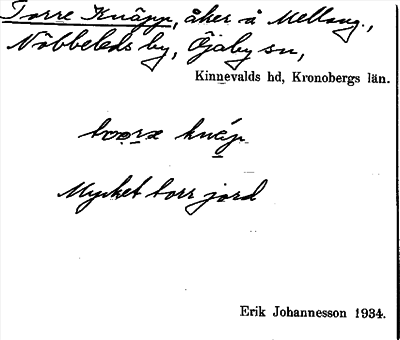 Torre Knäpp, åker å Mellang.,
Nöbbeleds by, Öjaby sn,
Kinnevalds hd, Kronobergs län.
knäp
Mycket torr jord
Erik Johannesson 1934.